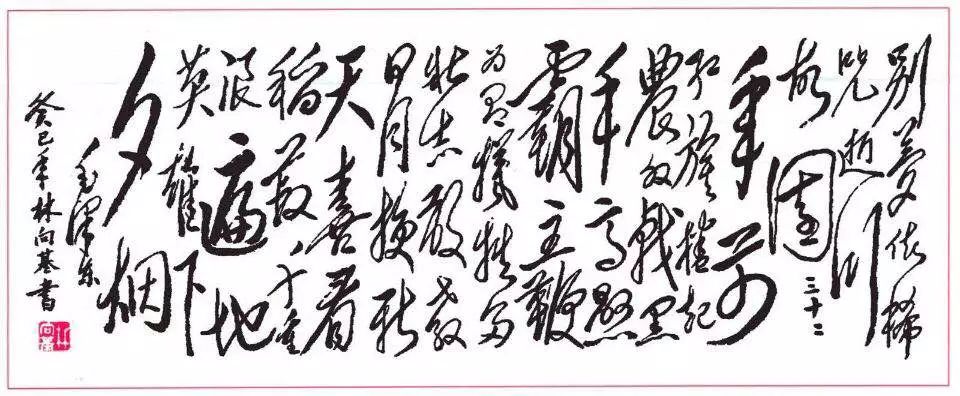 别梦依稀
咒逝川
故園三十二
年前
红旗捲起
農奴戟黑
手高悬
霸主鞭
为有犠牲多
壮志敢教
日月换新
天喜看
稻菽千重
浪遍地
英雄下
夕烟
毛泽东
癸巳年林向基書